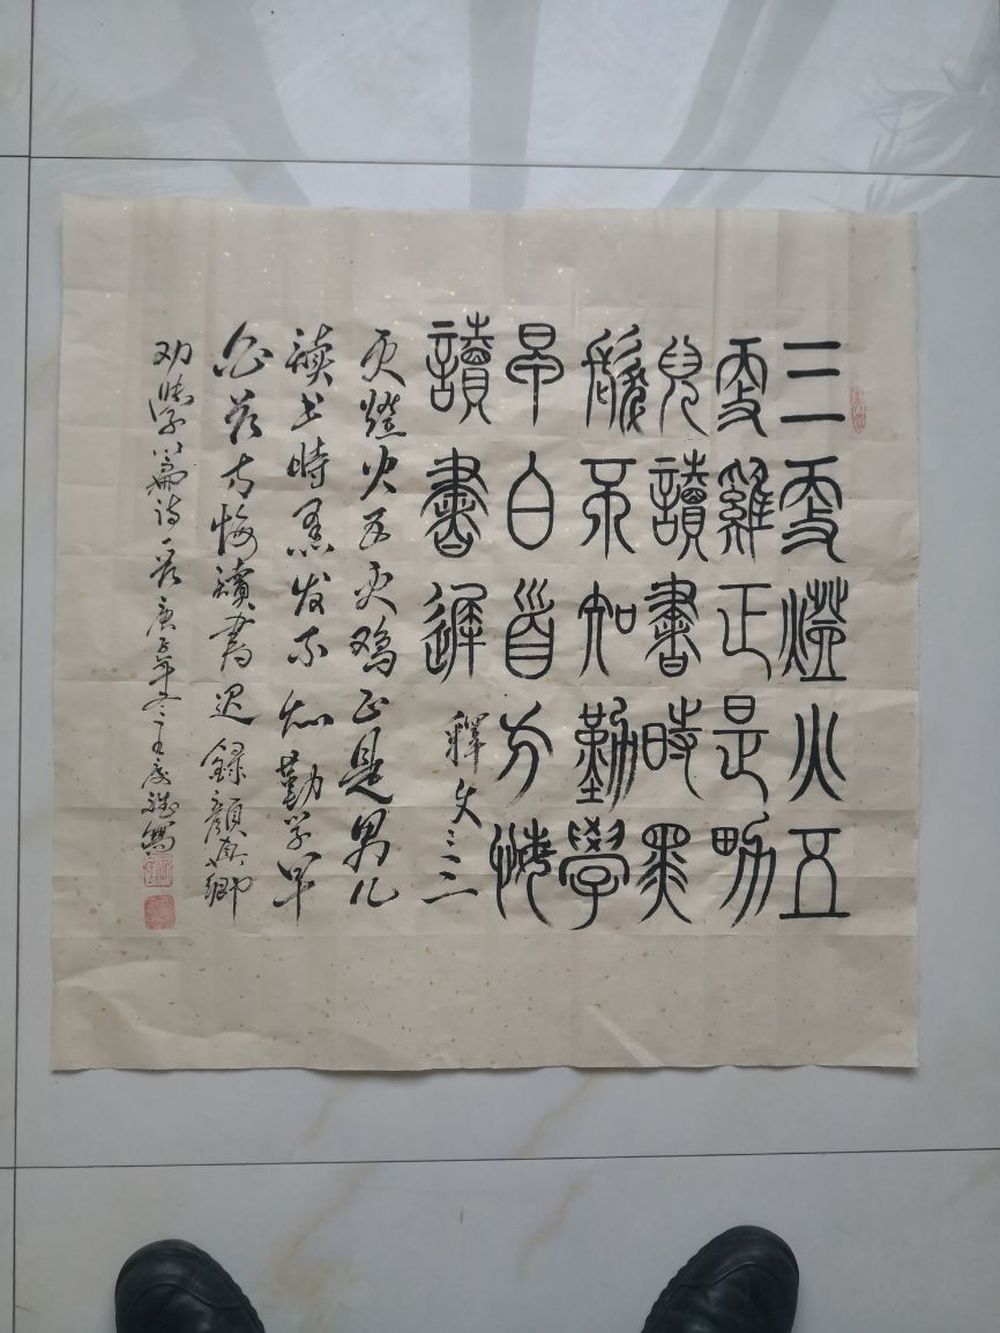 三更燈火五
更雞正是男
兒讀書時黑
髮不知勤學
早白首方悔
讀書遲
釋文:三
更燈火五更鸡正是男儿
读书时黑发不知勤学早
白首方悔讀書迟錄顔真卿
劝学篇诗一首庚子年冬